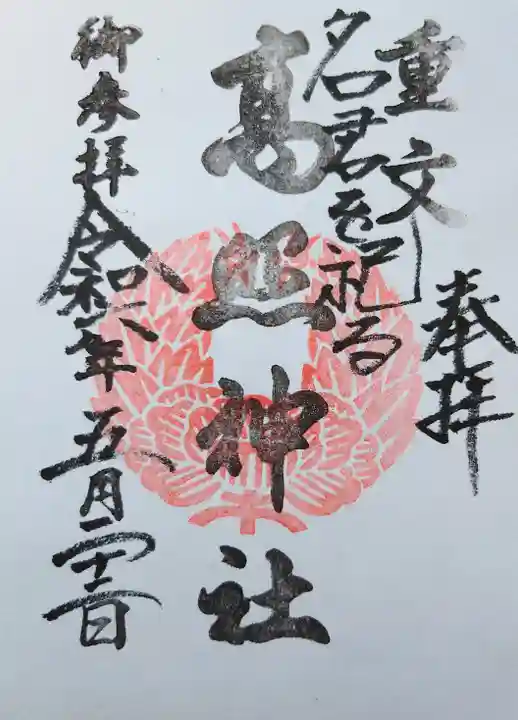 奉拝
重文
名君を祀る
高照神社
御参拝 令和六年 五月二十二日